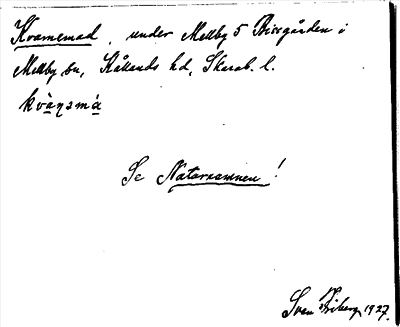 Kvarnemad, under Mellby 5 Biosgården i
Mellby sn, Kållands hd, Skarab. l.
kvα̈ɳsmα̇
Se Naturnamnen!
Sven Friberg 1927.